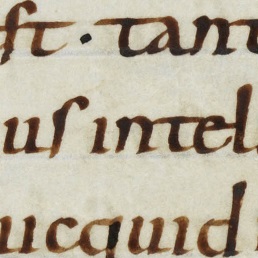 ſt · tant
us intell
uicquid